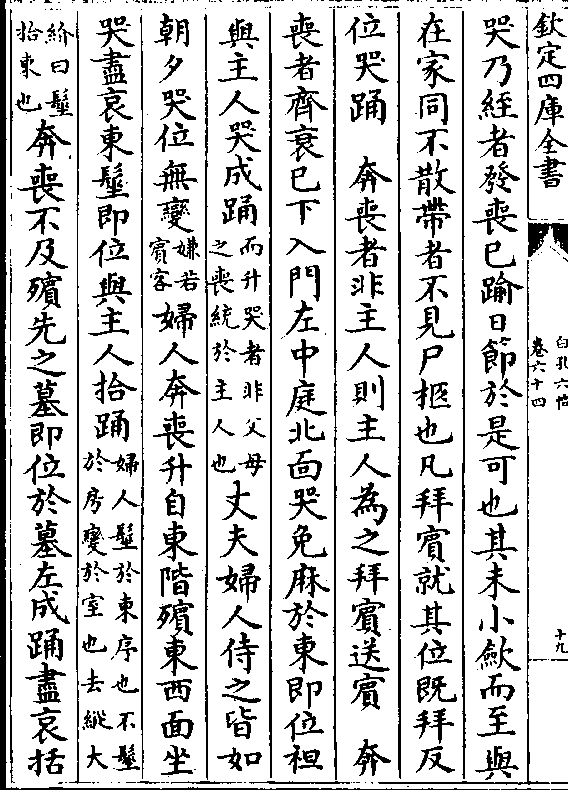 欽定四庫全書
白孔六帖
卷六十四
十九
哭乃絰者發喪已踰日節於是可也其未小歛而至與
在家同不散帶者不見尸柩也凡拜賔就其位既拜反
位哭踊　奔喪者非主人則主人為之拜賔送賔　奔
喪者齊衰已下入門左中庭北面哭免麻於東即位袒
與主人哭成踊而升哭者非父母之喪統於主人也丈夫婦人侍之皆如
朝夕哭位無變嫌若賔客婦人奔喪升自東階殯東西面坐
哭盡哀東髽即位與主人拾踊婦人髽於東序也不髽於房變於室也去縰大
紒曰髽拾東也奔喪不及殯先之墓即位於墓左成踊盡哀括